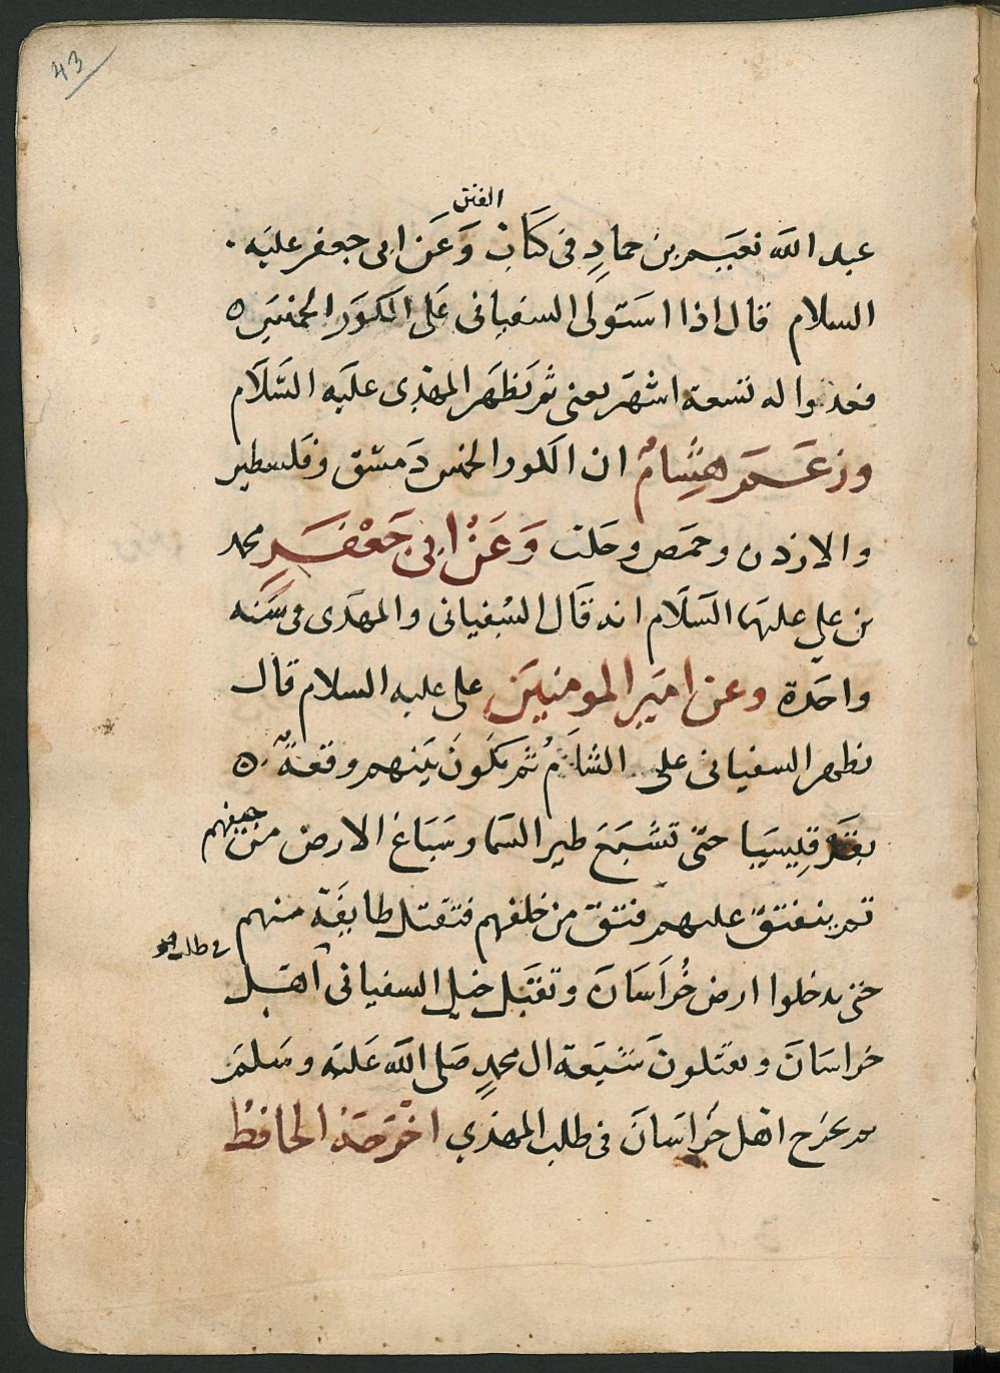 43
الفتن
عبد الله نعيم بن حماد في كتاب وعن ابي جعفر عليه
السلام قال اذا استولى السفياني على الكور الخمس
فعدوا له تسعة اشهر يعني ثم يظهر المهدي عليه السلام
وزعم هشام ان الكور الخمس دمشق وفلسطين
والاردن وحمص وحلب وعن ابي جعفر محمد
بن علي عليهما السلام انه قال السفياني والمهدي في سنه
واحدة وعن امير المومنين علي عليه السلام قال
يظهر السفياني على الشام ثم يكون بينهم وقعة
بقرقيسيا حتى تشبع طير السما وسباع الارض من جيفهم
ثم ينفتق عليهم فتق من خلفهم فتقبل طايفة منهم
حتى يدخلوا ارض خراسان وتقبل خيل السفياني في طلب اهل
خراسان ويقتلون شيعة ال محمد صلى الله عليه وسلم
ثم يخرج اهل خراسان في طلب المهدي اخرجه الحافظ